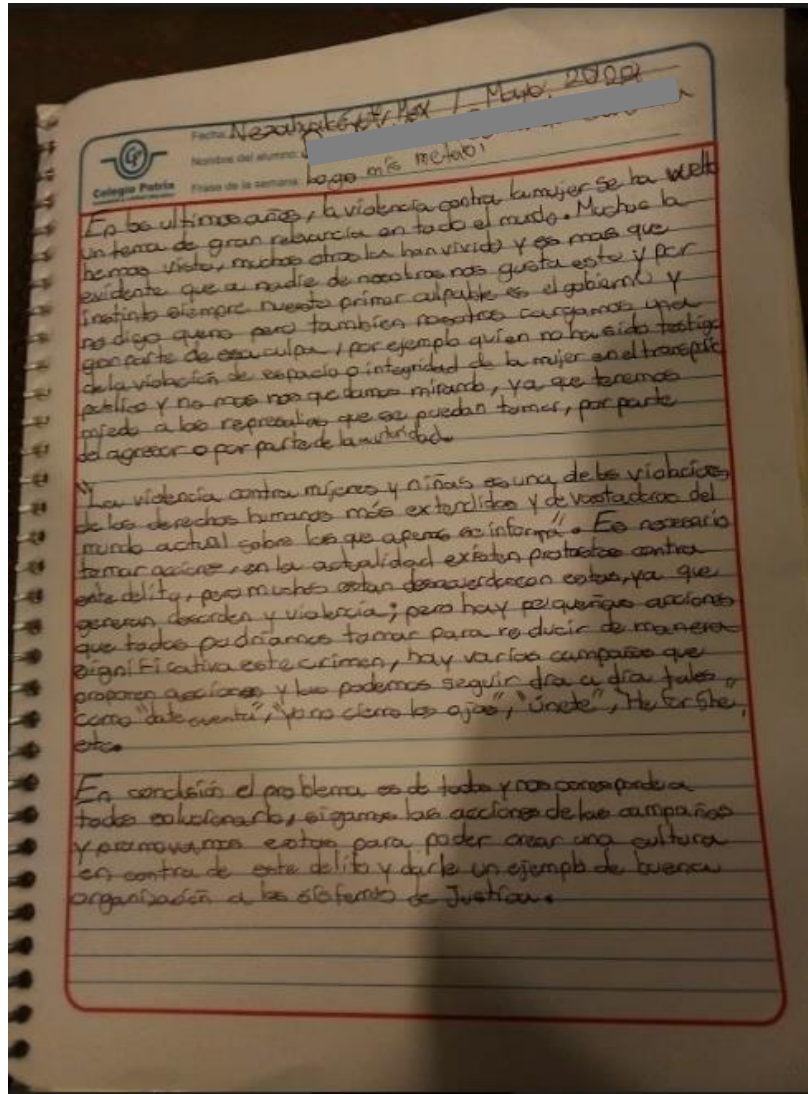 Fecha: Nezahualcóyotl, Mex / Mayo,
Nombre del alumno:
Colegio Patria
Frase de la semana: hago mis metas!
En los ultimos años, la violencia contra la mujer se ha vuelto
un tema de gran relevancia en todo el mundo. Muchos la
hemos visto, muchas otras la han vivido y es mas que
evidente que a nadie de nosotros nos gusta esto y por
instinto siempre nuestro primer culpable es el gobierno y
no digo que no pero tambien nosotros cargamos una
gran parte de esa culpa, por ejemplo quien no ha sido testigo
de la violación de espacio o integridad de la mujer en el transporte
publico y no mas nos quedamos mirando, ya que tenemos
miedo a las represalias que se puedan tomar, por parte
del agresor o por parte de la autoridad.
"La violencia contra mujeres y niñas es una de las violaciones
de los derechos humanos más extendidas y devastadoras del
mundo actual sobre las que apenas se informa". Es necesario
tomar acciones, en la actualidad existen protestas contra
este delito, pero muchos estan desacuerdo con estas, ya que
generan desorden y violencia; pero hay pequeñas acciones
que todos podríamos tomar para reducir de manera
significativa este crimen, hay varias campañas que
proponen acciones y las podemos seguir dia a dia tales
como "date cuenta", "yo no cierro los ojos", "únete", "He for She,
etc.
En conclusión el problema es de todos y nos corresponde a
todos solucionarlo, sigamos las acciones de las campañas
y promovamos estas para poder crear una cultura
en contra de este delito y darle un ejemplo de buena
organización a los sistemas de Justicia.